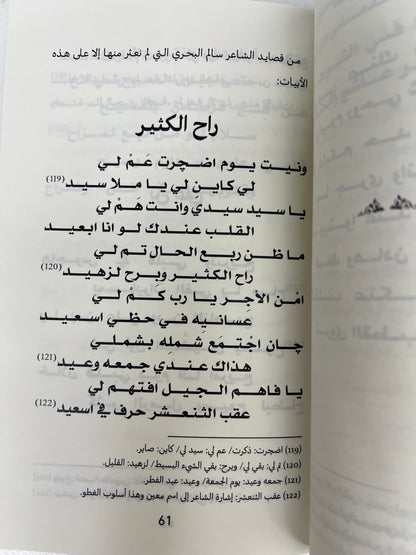 من قصايد الشاعر سالم البحري التي لم نعثر منها إلا على هذه
الأبيات:
راح الكثير
ونيت يوم اضجرت عَمْ لي
لي كاين لي يا ملا سيد(119)
يا سيد سيديْ وانت هَمْ لي
القلب عندك لو انا ابعيد
ما ظن ربع الحال تم لي
راح الكثير وبرح لزهيد(120)
امْن الأجِر يا رب كمْ لي
عسانيه في حظي اسعيد
چان اجْتمَع شملِه بشملي
هذاك عندي جمعه وعيد(121)
يا فاهم الجيل افتهم لي
عقب الثنعشر حرف في اسعيد(122)
(119) اضجرت: ذكرت/ عم لي: سيد لي/ كاين: صاير.
(120) تم لي: بقي لي/ وبرح: بقي الشيء البسيط/ لزهيد: القليل.
(121) جمعه وعيد: يوم الجمعة/ وعيد: عيد الفطر.
(122) عقب الثنعشر: إشارة الشاعر إلى اسم معين وهذا أسلوب الغطو.
61